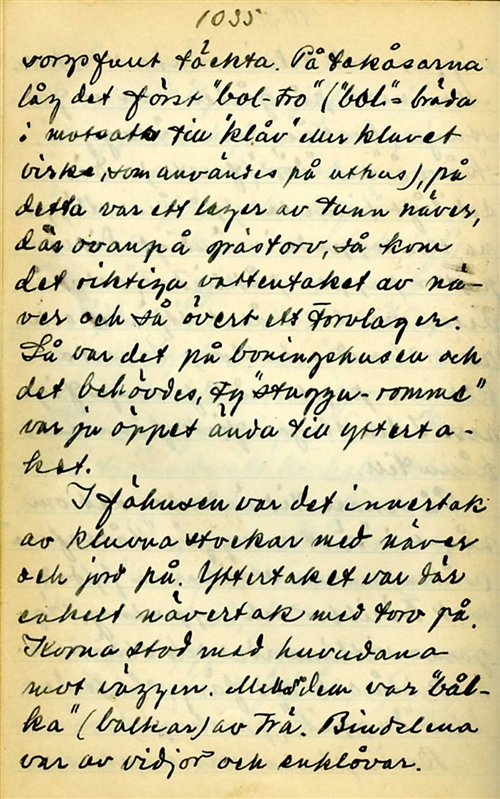 1035
torvsfunt täckta. På takåsarna
låg det först "bol-tro" ("bol"= bräda
i motsats till "klåv" eller kluvet
virke, som användes på uthus), på
detta var ett lager av tunn näver,
där ovanpå grästorv, så kom
det riktiga vattentaket av nä-
ver och så överst ett torvlager.
Så var det på boningshusen och
det behövdes, ty "stuggu-romme"
var ju öppet ända till ytterta-
ket.
I fähusen var det innertak
av kluvna stockar med näver
och jord på. Yttertaket var där
enkelt nävertak med torv på.
Korna stod med huvudana
mot väggen. Mellan dem var "bål-
ka" (balkar) av trä. Bindslena
var av vidjor och enklåvar.